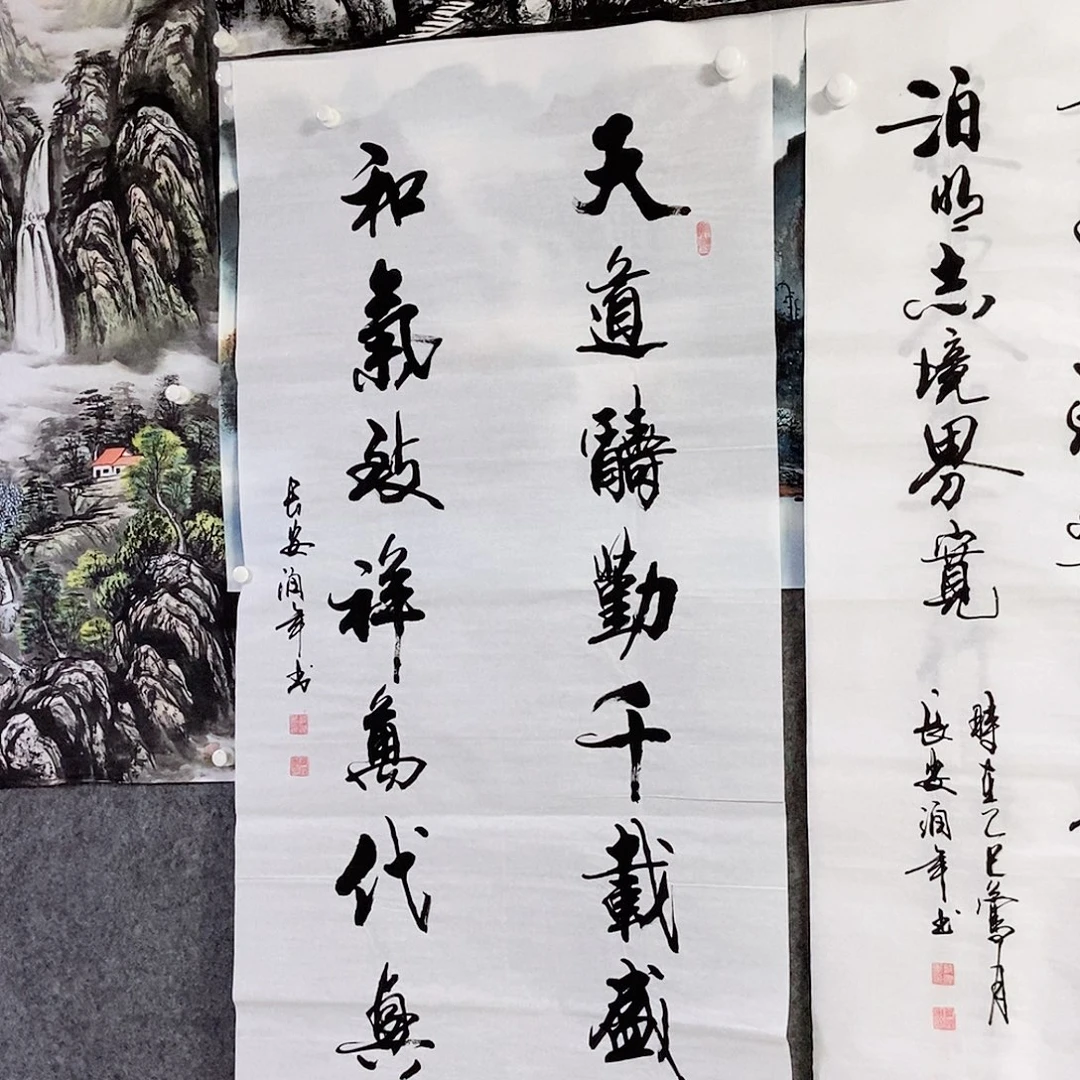 泊明志境界寬
時在乙巳鶯月
長安润年书
天道醻勤千載盛
和氣致祥萬代興
长安润年书